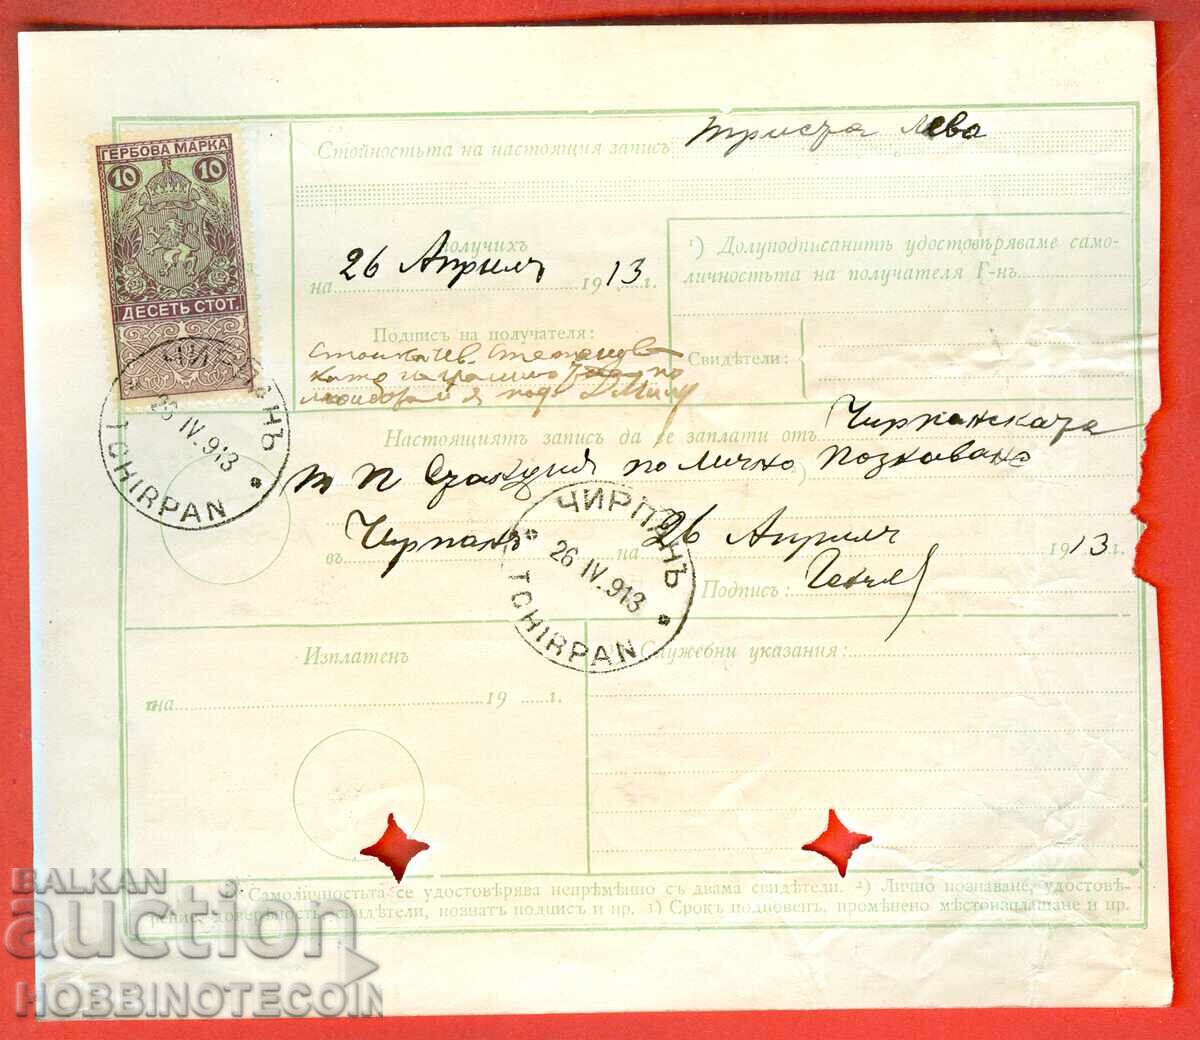 ГЕРБОВА МАРКА
10 10
ДЕСЕТЬ СТОТ.
ЧИРПАНЪ
26 IV. 913
TCHIRPAN
Стойностьта на настоящия записъ триста лева
Получихъ
на 26 Априлъ 1913 г.
Подписъ на получателя:
¹) Долуподписанитѣ удостовѣряваме само-
личностьта на получателя Г-нъ
Свидѣтели:
Настоящиятъ записъ да се заплати отъ Чирпанската
Т П Станция по лично познаване
въ Чирпанъ на 26 Априлъ 1913 г.
Подписъ:
ЧИРПАНЪ
26 IV. 913
TCHIRPAN
Изплатенъ
на 19 г.
Служебни указания:
¹) Самоличностьта се удостовѣрява непрѣмѣнно съ двама свидѣтели. ²) Лично познаване, удостовѣ-
рение, довѣреность, свидѣтели, познатъ подписъ и пр. ³) Срокъ подновенъ, промѣнено мѣстоизплащане и пр.
BALKAN
auction
HOBBINOTECOIN